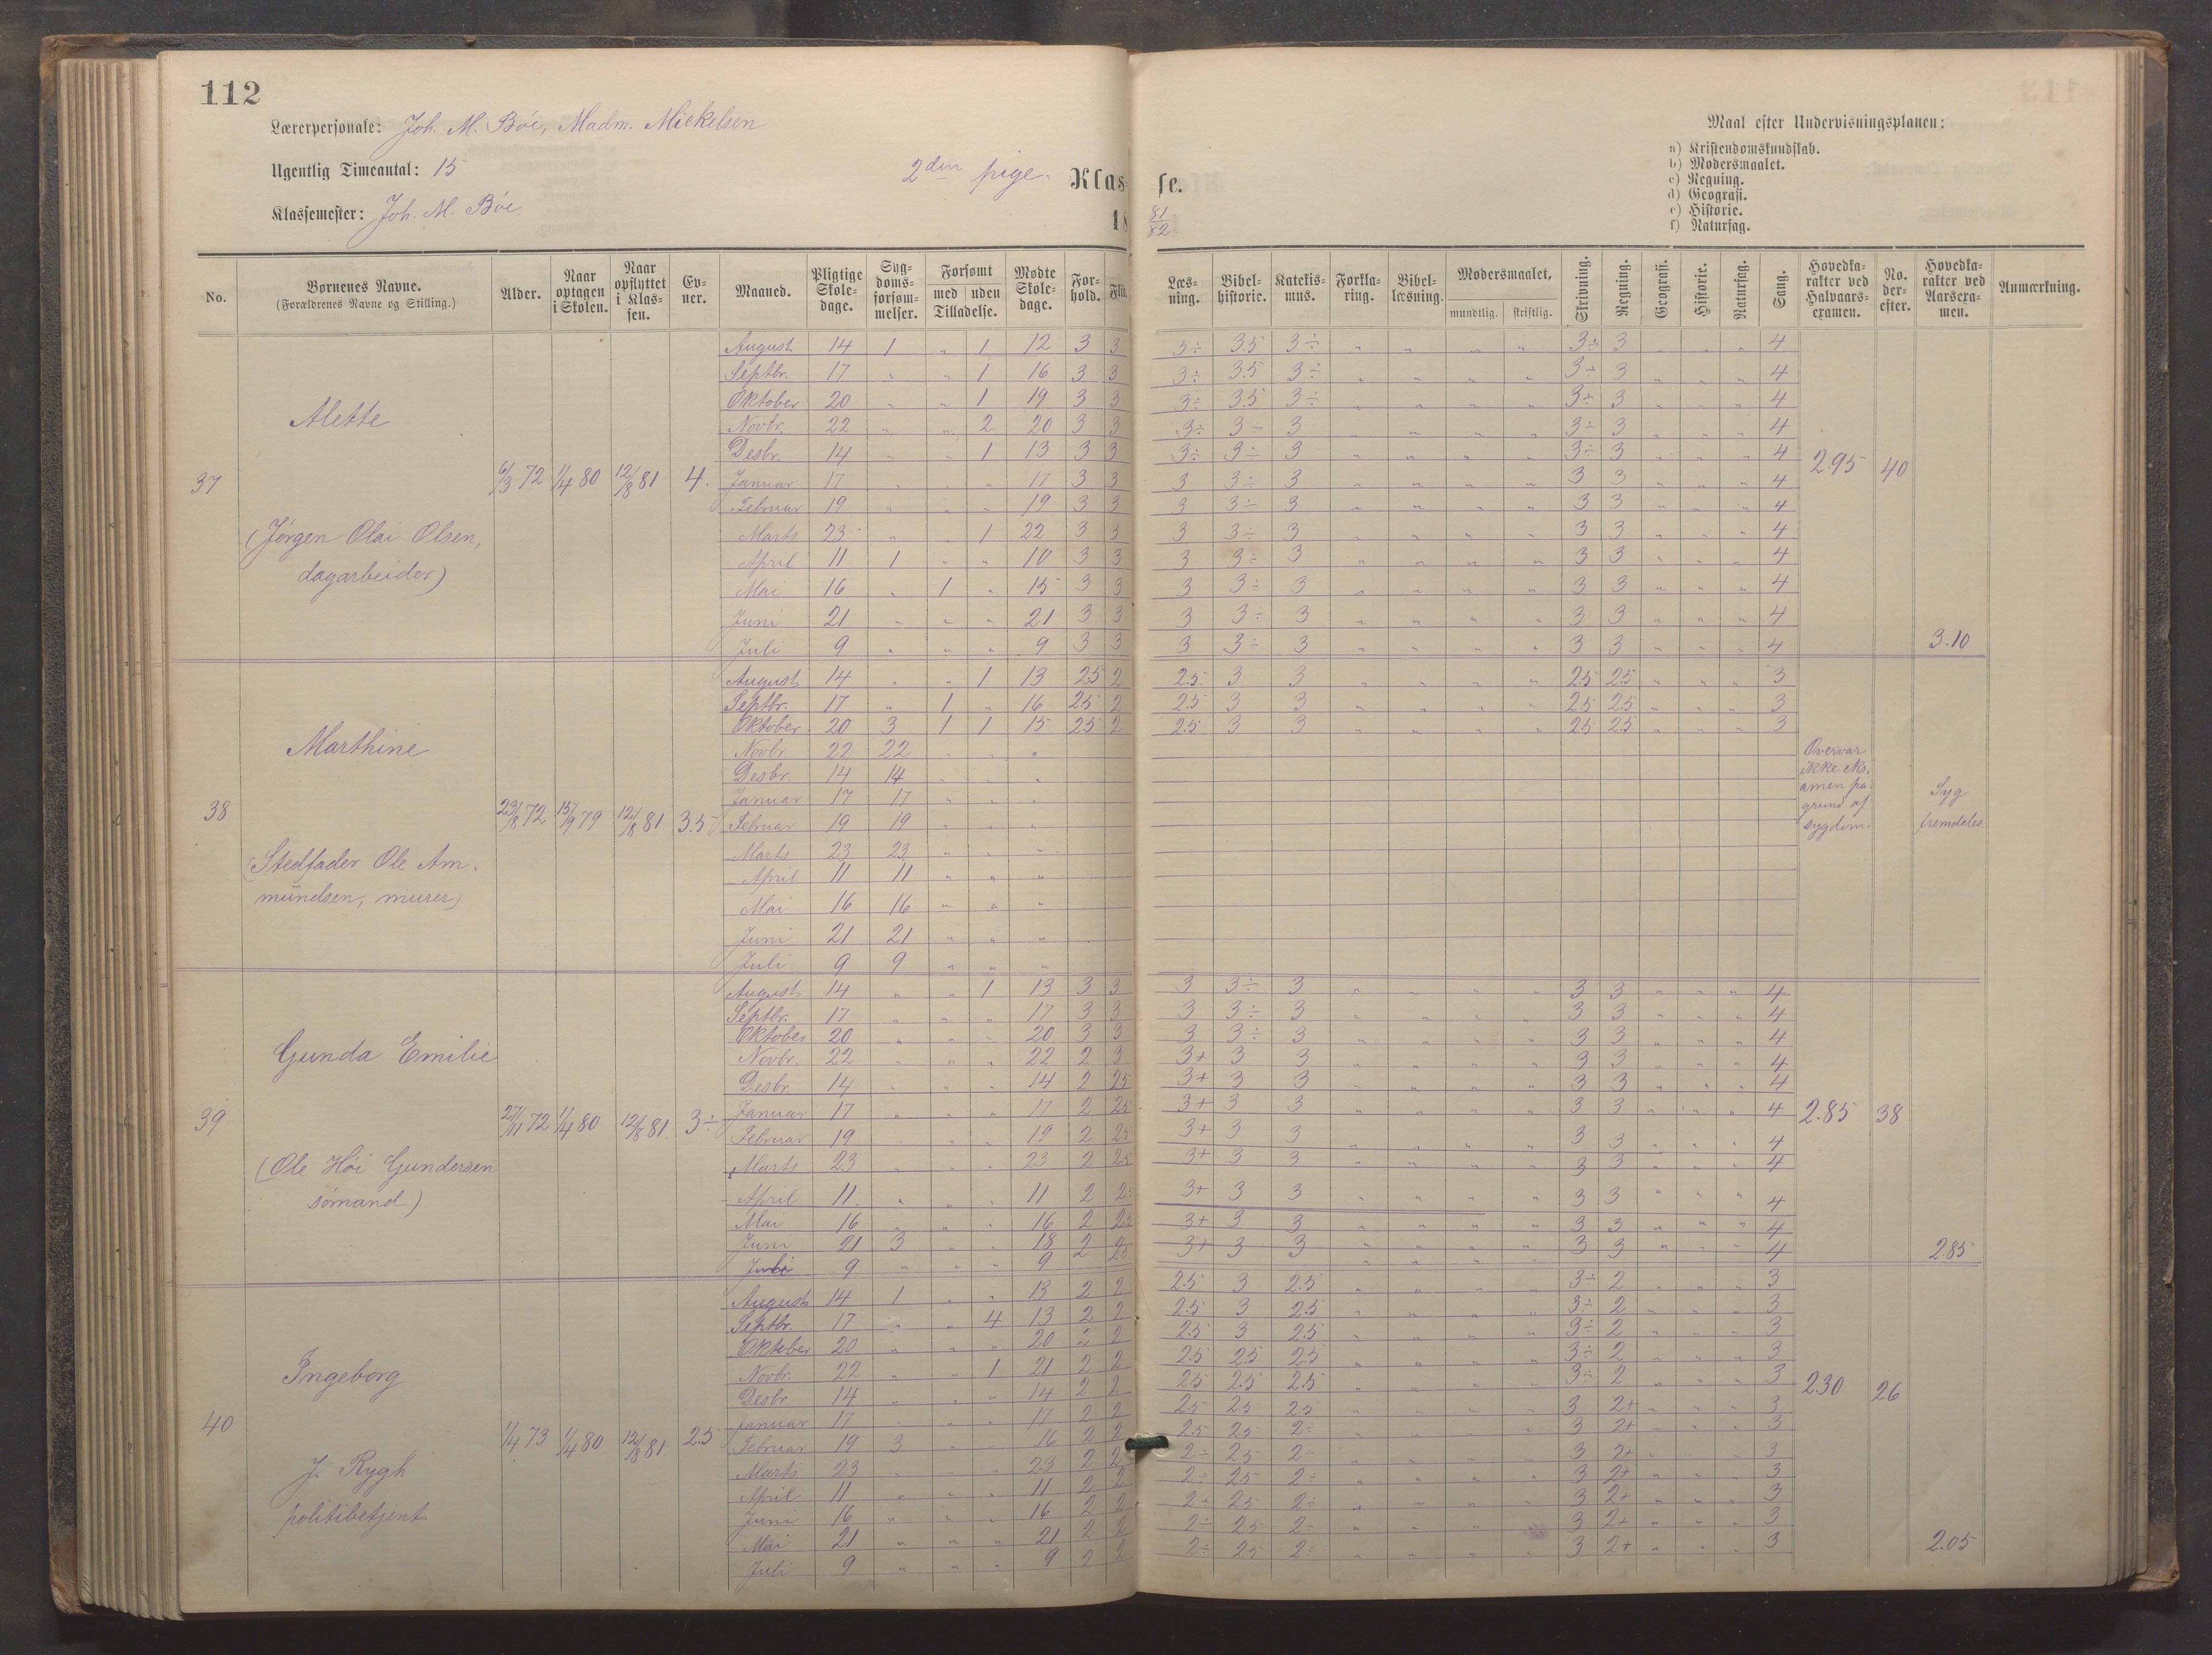 112
Lærerpersonale: Joh. M. Bøe, Madm. Mickelsen
Ugentlig Timeantal: 15
Klassemester: Joh. M. Bøe.
2den pige- Klas-
18
se.
81
82
Maal efter Undervisningsplanen:
a) Kristendomskundskab.
b) Modersmaalet.
c) Regning.
d) Geografi.
e) Historie.
f) Naturfag.
No. | Børnenes Navne. (Forældrenes Navne og Stilling.) | Alder. | Naar optagen i Skolen. | Naar opflyttet i Klassen. | Evner. | Maaned. | Pligtige Skoledage. | Sygdomsforsømmelser. | Forsømt med uden Tilladelse. | Mødte Skoledage. | Forhold. | Flid. | Læsning. | Bibelhistorie. | Katekismus. | Forklaring. | Bibellæsning. | Modersmaalet, mundtlig. skriftlig. | Skrivning. | Regning. | Geografi. | Historie. | Naturfag. | Sang. | Hovedkarakter ved Halvaarsexamen. | No. derefter. | Hovedkarakter ved Aarsexamen. | Anmærkning.
37 Alette
(Jørgen Olai Olsen,
dagarbeider)
6/3 72 1/4 80 12/8 81 4.
August 14 1 „ 1 12 3 3 3÷ 3.5 3÷ „ „ „ „ 3÷ 3 „ „ „ 4
Septbr. 17 „ „ 1 16 3 3 3÷ 3.5 3÷ „ „ „ „ 3÷ 3 „ „ „ 4
Oktober 20 „ „ 1 19 3 3 3÷ 3.5 3÷ „ „ „ „ 3÷ 3 „ „ „ 4
Novbr. 22 „ „ 2 20 3 3 3÷ 3÷ 3 „ „ „ „ 3÷ 3 „ „ „ 4
Desbr. 14 „ „ 1 13 3 3 3÷ 3÷ 3 „ „ „ „ 3÷ 3 „ „ „ 4
Januar 17 „ „ „ 17 3 3 3 3÷ 3 „ „ „ „ 3 3 „ „ „ 4
Februar 19 „ „ „ 19 3 3 3 3÷ 3 „ „ „ „ 3 3 „ „ „ 4
Marts 23 „ „ 1 22 3 3 3 3÷ 3 „ „ „ „ 3 3 „ „ „ 4
April 11 1 „ „ 10 3 3 3 3÷ 3 „ „ „ „ 3 3 „ „ „ 4
Mai 16 „ 1 „ 15 3 3 3 3÷ 3 „ „ „ „ 3 3 „ „ „ 4
Juni 21 „ „ „ 21 3 3 3 3÷ 3 „ „ „ „ 3 3 „ „ „ 4
Juli 9 „ „ „ 9 3 3 3 3÷ 3 „ „ „ „ 3 3 „ „ „ 4
2.95 40 3.10
38 Marthine
(Stedfader Ole Am-
mundsen, murer)
23/8 72 15/9 79 12/8 81. 3.5
August 14 „ „ 1 13 2.5 2 2.5 3 3 „ „ „ „ 2.5 2.5 „ „ „ 3
Septbr. 17 „ 1 „ 16 2.5 2 2.5 3 3 „ „ „ „ 2.5 2.5 „ „ „ 3
Oktober 20 3 1 1 15 2.5 2 2.5 3 3 „ „ „ „ 2.5 2.5 „ „ „ 3
Novbr. 22 22 „ „ „
Desbr. 14 14 „ „ „
Januar 17 17 „ „ „
Februar 19 19 „ „ „
Marts 23 23 „ „ „
April 11 11 „ „ „
Mai 16 16 „ „ „
Juni 21 21 „ „ „
Juli 9 9 „ „ „
Overvar
ikke eks-
amen pa.
grund af
sygdom.
Syg
fremdeles
39 Gunda Emilie
(Ole Høi Gundersen
sømand)
27/11 72 1/4 80 12/8 81. 3÷
August 14 „ „ 1 13 3 3 3 3÷ 3 „ „ „ „ 3 3 „ „ „ 4
Septbr. 17 „ „ „ 17 3 3 3 3÷ 3 „ „ „ „ 3 3 „ „ „ 4
Oktober 20 „ „ „ 20 3 3 3 3÷ 3 „ „ „ „ 3 3 „ „ „ 4
Novbr. 22 „ „ „ 22 2 3 3+ 3 3 „ „ „ „ 3 3 „ „ „ 4
Desbr. 14 „ „ „ 14 2 2.5 3+ 3 3 „ „ „ „ 3 3 „ „ „ 4
Januar 17 „ „ „ 17 2 2.5 3+ 3 3 „ „ „ „ 3 3 „ „ „ 4
Februar 19 „ „ „ 19 2 2.5 3+ 3 3 „ „ „ „ 3 3 „ „ „ 4
Marts 23 „ „ „ 23 2 2.5 3+ 3 3 „ „ „ „ 3 3 „ „ „ 4
April 11. „ „ „ 11 2 2.5 3+ 3 3 „ „ „ „ 3 3 „ „ „ 4
Mai 16 „ „ „ 16 2 2.5 3+ 3 3 „ „ „ „ 3 3 „ „ „ 4
Juni 21 3 „ „ 18 2 2.5 3+ 3 3 „ „ „ „ 3 3 „ „ „ 4
Juli 9 „ „ „ 9
2.85 38 2.85
40 Ingeborg
J. Rygh
politibetjent
1/4 73 1/4 80 12/8 81. 2.5
August 14 1 „ „ 13 2 2 2.5 3 2.5 „ „ „ „ 3÷ 2 „ „ „ 3
Septbr. 17 „ „ 4 13 2 2 2.5 3 2.5 „ „ „ „ 3÷ 2 „ „ „ 3
Oktober 20 „ „ „ 20 2 2 2.5 3 2.5 „ „ „ „ 3÷ 2 „ „ „ 3
Novbr. 22 „ „ 1 21 2 2 2.5 2.5 2.5 „ „ „ „ 3÷ 2 „ „ „ 3
Desbr 14 „ „ „ 14 2 2 2.5 2.5 2.5 „ „ „ „ 3÷ 2 „ „ „ 3
Januar 17 „ „ „ 17 2 2 2.5 2.5 2.5 „ „ „ „ 3 2+ „ „ „ 3
Februar 19 3 „ „ 16 2 2 2.5 2.5 2÷ „ „ „ „ 3 2+ „ „ „ 3
Marts 23 „ „ „ 23 2 2 2÷ 2.5 2÷ „ „ „ „ 3 2+ „ „ „ 3
April 11 „ „ „ 11 2 2 2÷ 2.5 2÷ „ „ „ „ 3 2+ „ „ „ 3
Juni 16 „ „ „ 16 2 2 2÷ 2.5 2÷ „ „ „ „ 3 2+ „ „ „ 3
Mai 21 „ „ „ 21 2 2 2÷ 2.5 2÷ „ „ „ 3 2+ „ „ „ 3
Juli 9 „ „ „ 9 2 2 2÷ 2.5 2÷ „ „ „ „ 3 2+ „ „ „ 3
2.30 26 2.05